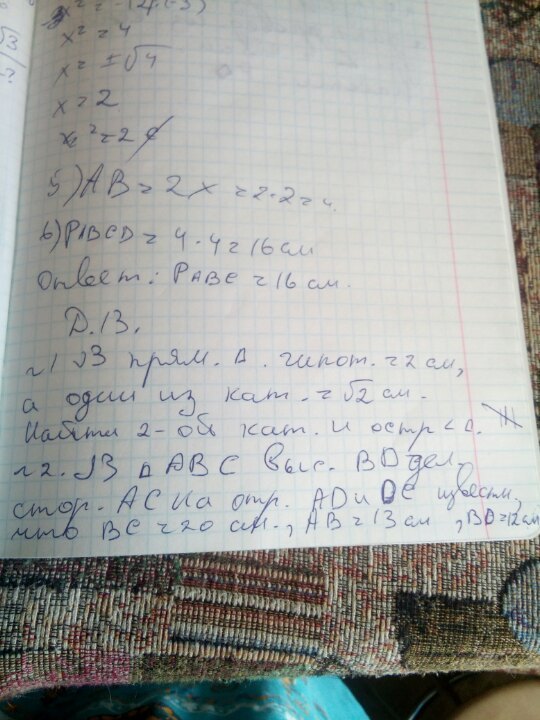 x² = 4
x = ±√4
x = 2
5) AB = 2x = 2·2 = 4.
6) PABCD = 4·4 = 16 см
Ответ: PABC = 16 см.
Д.З.
№1 В прям. Δ. гипот. = 2 см,
а один из кат. = √2 см.
Найти 2-ой кат. и остр < Δ.
№2. В Δ ABC выс. BD дел.
стор. AC на отр. AD и DC известн,
что BC = 20 см., AB = 13 см, BD = 12 см